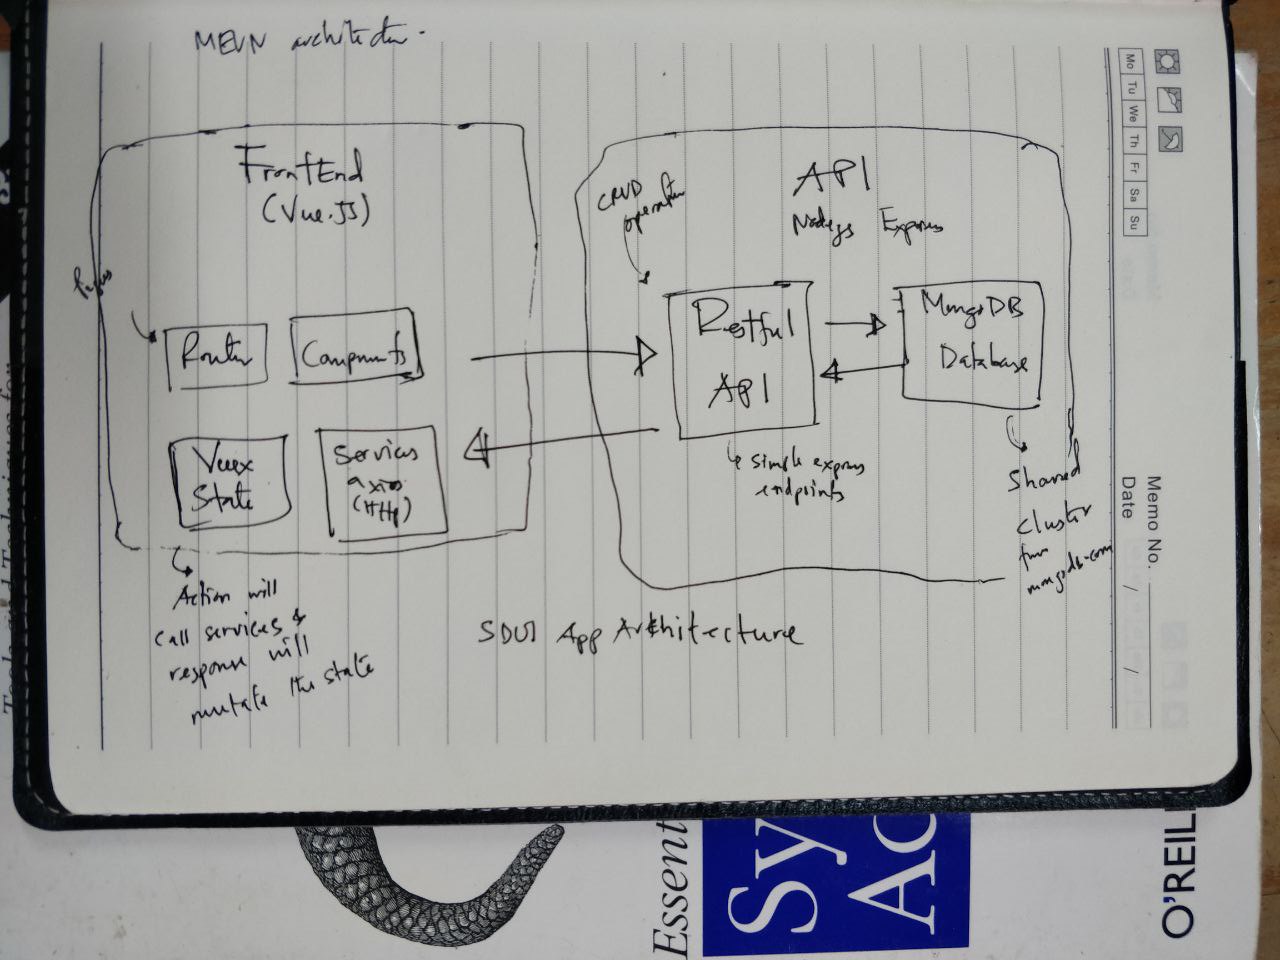 MEVN architectur.
FrontEnd
(Vue.JS)
Router
Components
Vuex
State
Services
axios
(HTTP)
Action will
call services &
response will
mutate the state
API
Nodejs Express
CRUD
operation
Restful
API
simple express
endpoints
MongoDB
Database
Shared
cluster
from
mongodb.com
SDUI App Architecture
Mo Tu We Th Fr Sa Su
Memo No.
Date / /
Essent
Sy
Ac
O'REIL